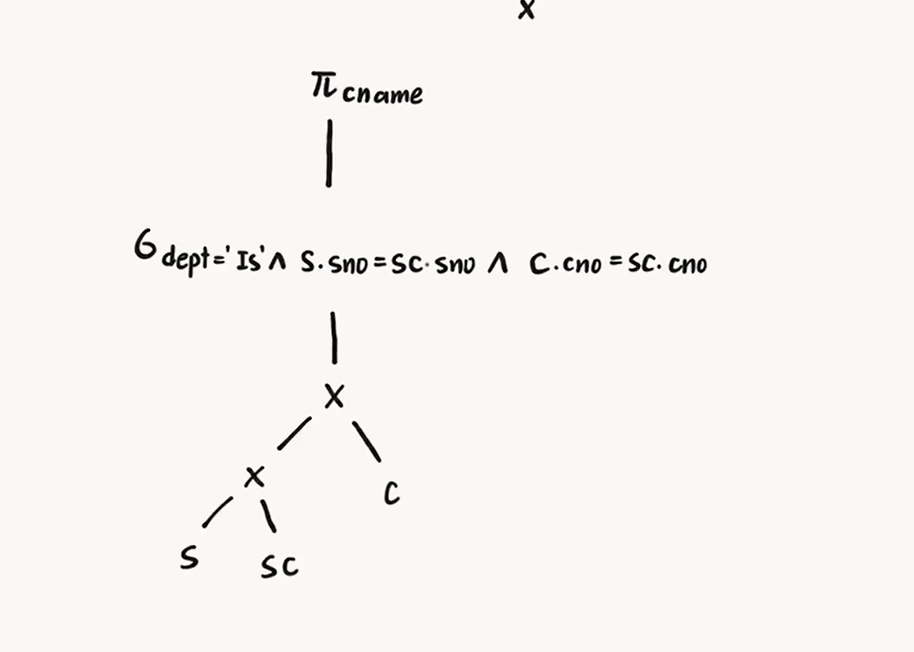 x
π cname
σ dept='Is'∧ S.sno=SC.sno ∧ C.cno=SC.cno
x
x
C
S SC